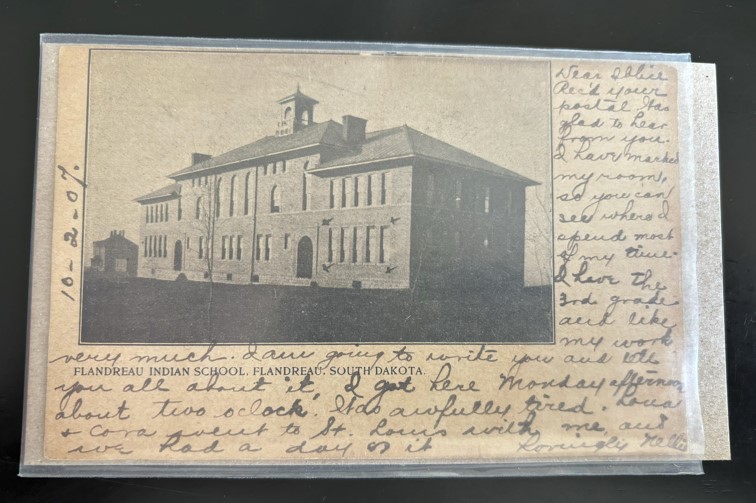 10-2-07.
Dear Ollie
Rec'd your
postal. Was
glad to hear
from you.
I have marked
my room,
so you can
see where I
spend most
of my time.
I have the
3rd grade
and like
my work
very much. I am going to write you and
FLANDREAU INDIAN SCHOOL, FLANDREAU, SOUTH DAKOTA.
you all about it, I got here Monday afternoon
about two oclock. Was awfully tired.
& Cora went to St. Louis with me, and
we had a day of it Lovingly Nellie